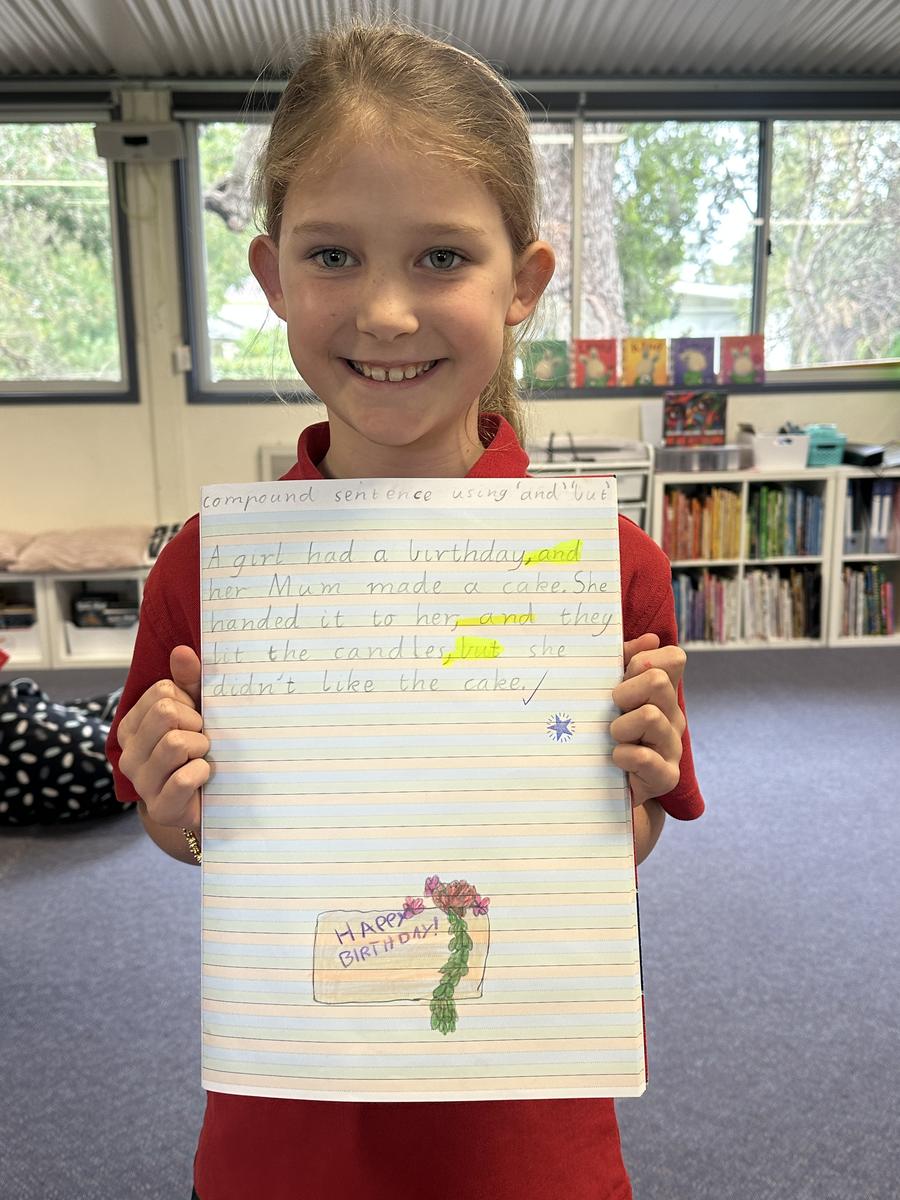 compound sentence using 'and' 'but'
A girl had a birthday, and
her Mum made a cake. She
handed it to her, and they
lit the candles, but she
didn't like the cake.
HAPPY
BIRTHDAY!